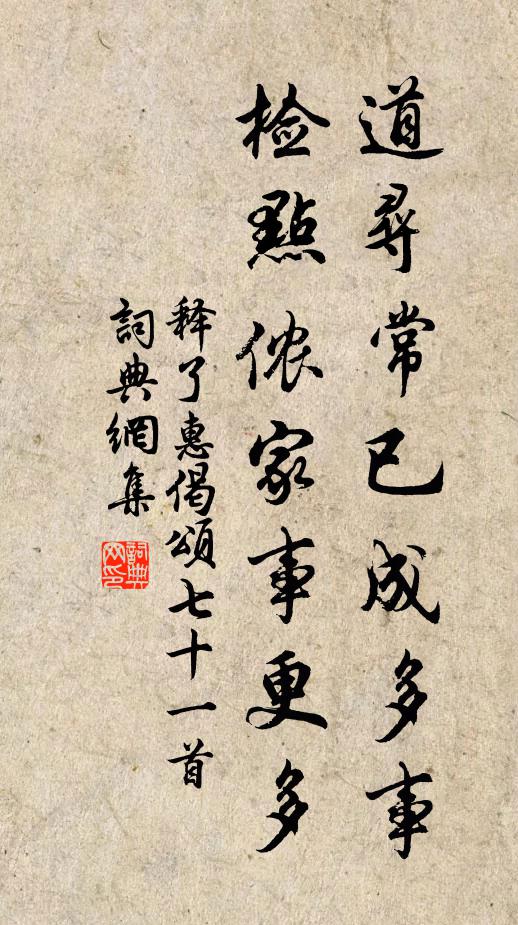 道尋常已成多事
檢點侬家事更多
释了惠偈頌七十一首
詞典網集
詞典网印